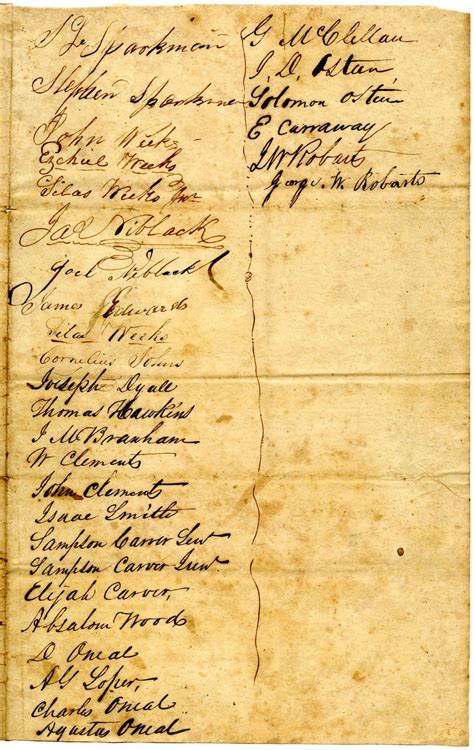 Sparkman
Stephen Sparkman
John Weeks
Ezekiel Weeks
Silas Weeks Jnr
Jas Niblack
Joel Niblack
James Edwards
Silas Weeks
Cornelius Johns
Joseph Dyall
Thomas Hawkins
J M Branham
W Clements
John Clements
Isaac Smith
Sampson Carver Senr
Sampson Carver Junr
Elijah Carver,
Absalom Wood
D Oneal
A G Loper,
Charles Oneal
Agustus Oneal
G McClellan
J. D. Osteen,
Solomon Osteen
E Carraway
J W Robarts
George W. Robarts